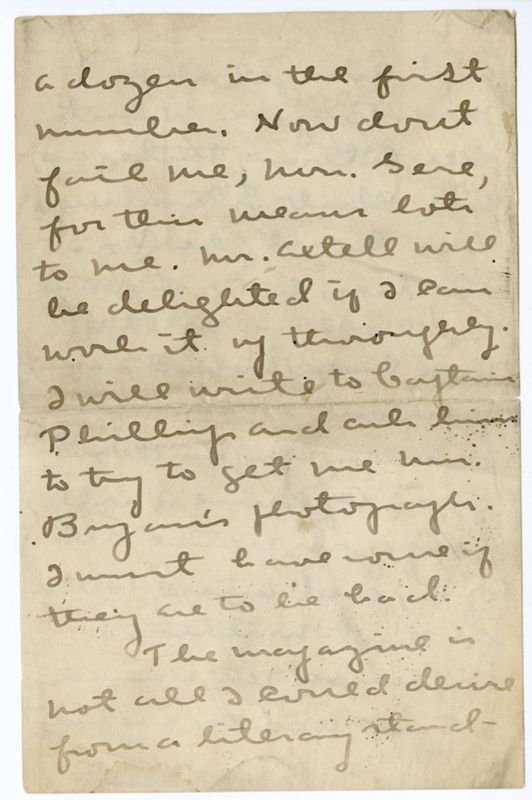 a dozen in the first
number. Now dont
fail me, Mrs. Gere,
for this means lots
to me. Mr. Axtell will
be delighted if I can
work it up thoroughly.
I will write to Captain
Phillips and ask him
to try to get me Mrs.
Bryan's photograph.
I must have some if
they are to be had.
The magazine is
not all I could desire
from a literary stand-